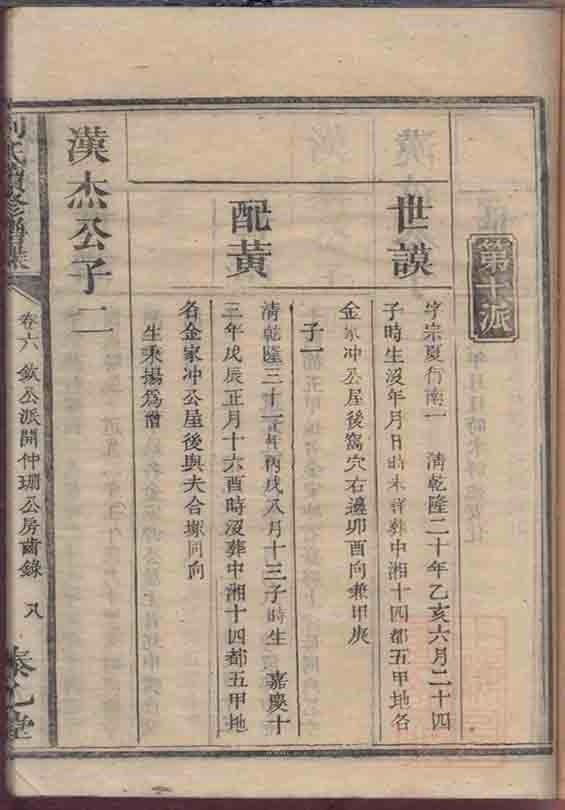 第十派
世謨
字宗夏行南一 清乾隆二十年乙亥六月二十四
子時生沒年月日時未詳葬中湘十四都五甲地名
金家冲公屋後窩穴右邊卯酉向兼甲庚
子一
配黃
清乾隆三十一年丙戌八月十三子時生 嘉慶十
三年戊辰正月十六酉時沒葬中湘十四都五甲地
名金家冲公屋後與夫合塚同向
生秉揚爲僧
漢杰公子二
氏續修譜
卷六 欽公派開仲珊公房齒錄
堂